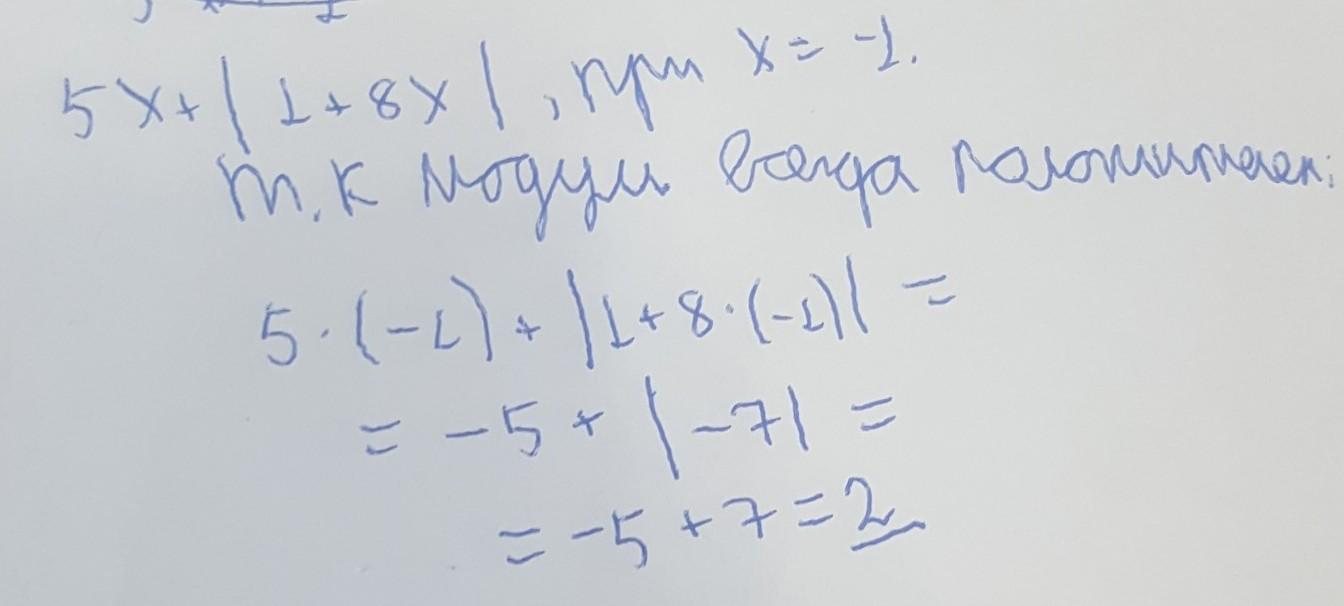 5x+|1+8x|, при x= -1.
т.к модуль всегда положителен:
5·(-1)+|1+8·(-1)| =
= -5+|-7| =
= -5+7=2